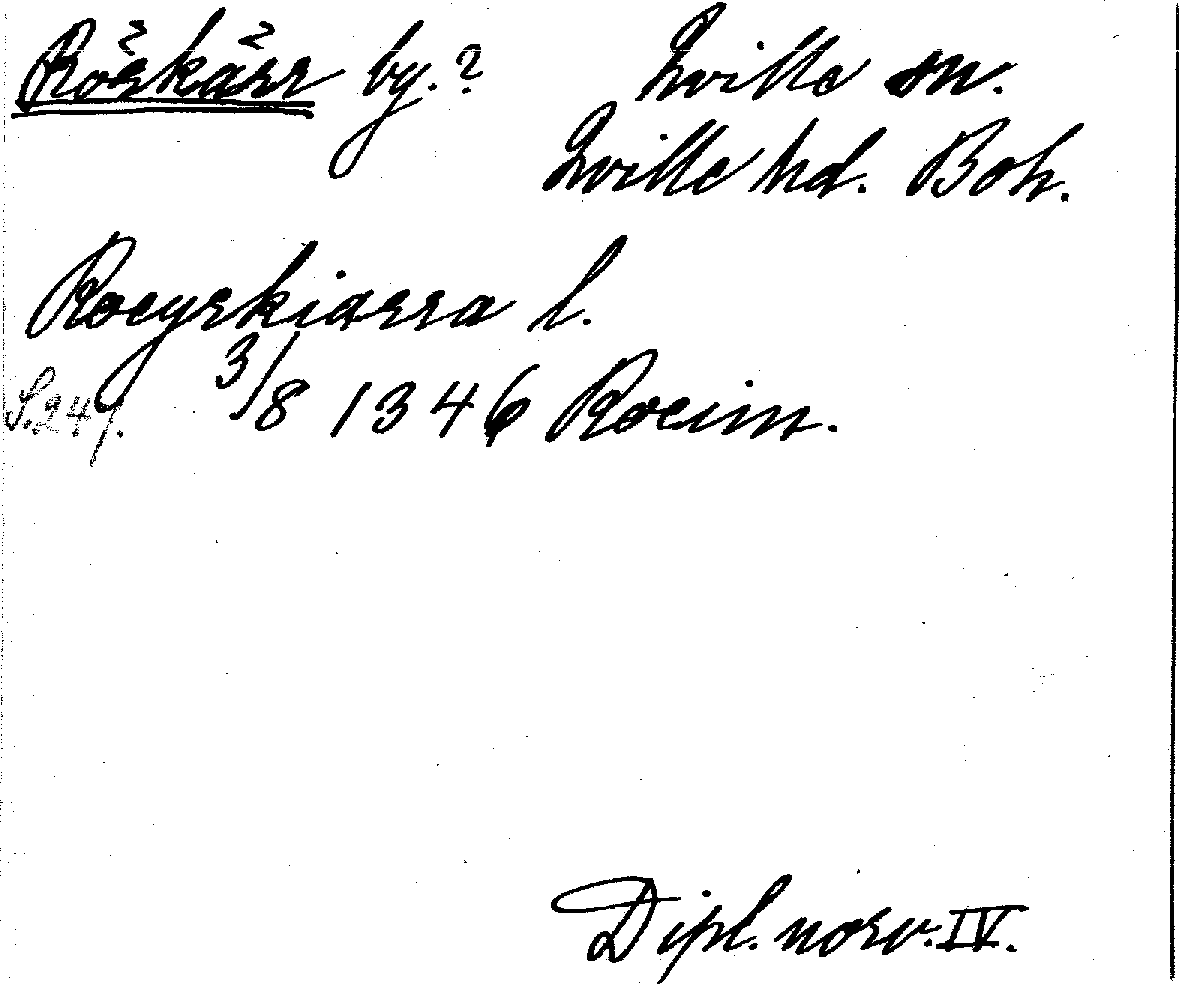 Rörkärr by.? Qville sn.
Qville hd. Boh.
Roeyrkiarra l.
S. 247. 3/8 1346 Roeim.
Dipl. norv. IV.